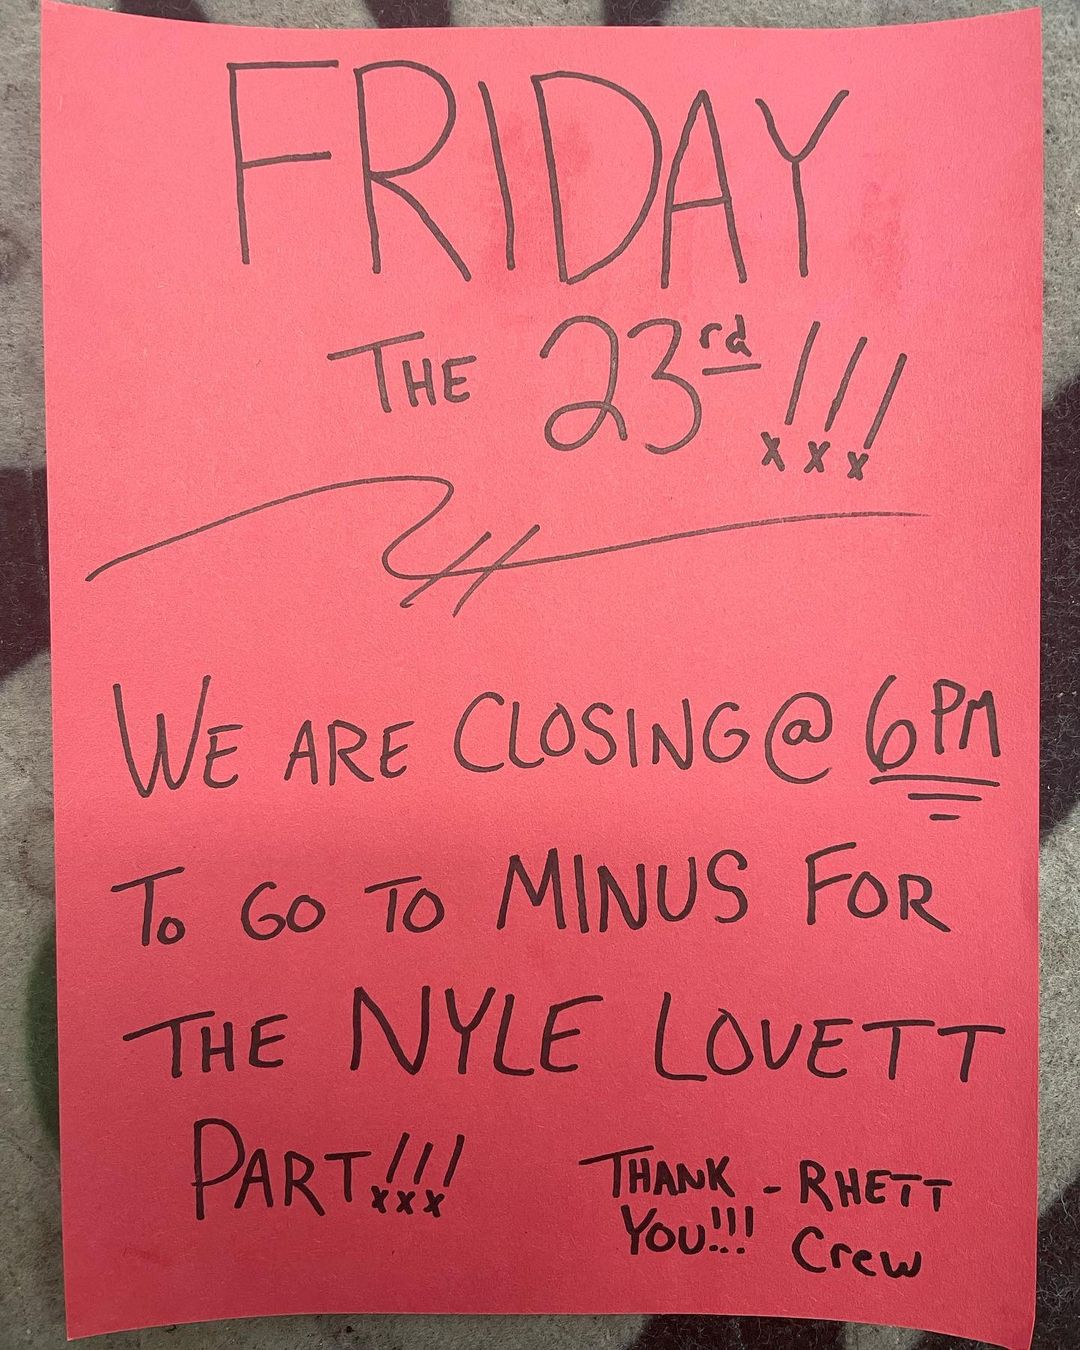 FRIDAY
THE 23rd!!!
WE ARE CLOSING @ 6PM
TO GO TO MINUS FOR
THE NYLE LOVETT
PART!!!
THANK YOU!!!
- RHETT Crew